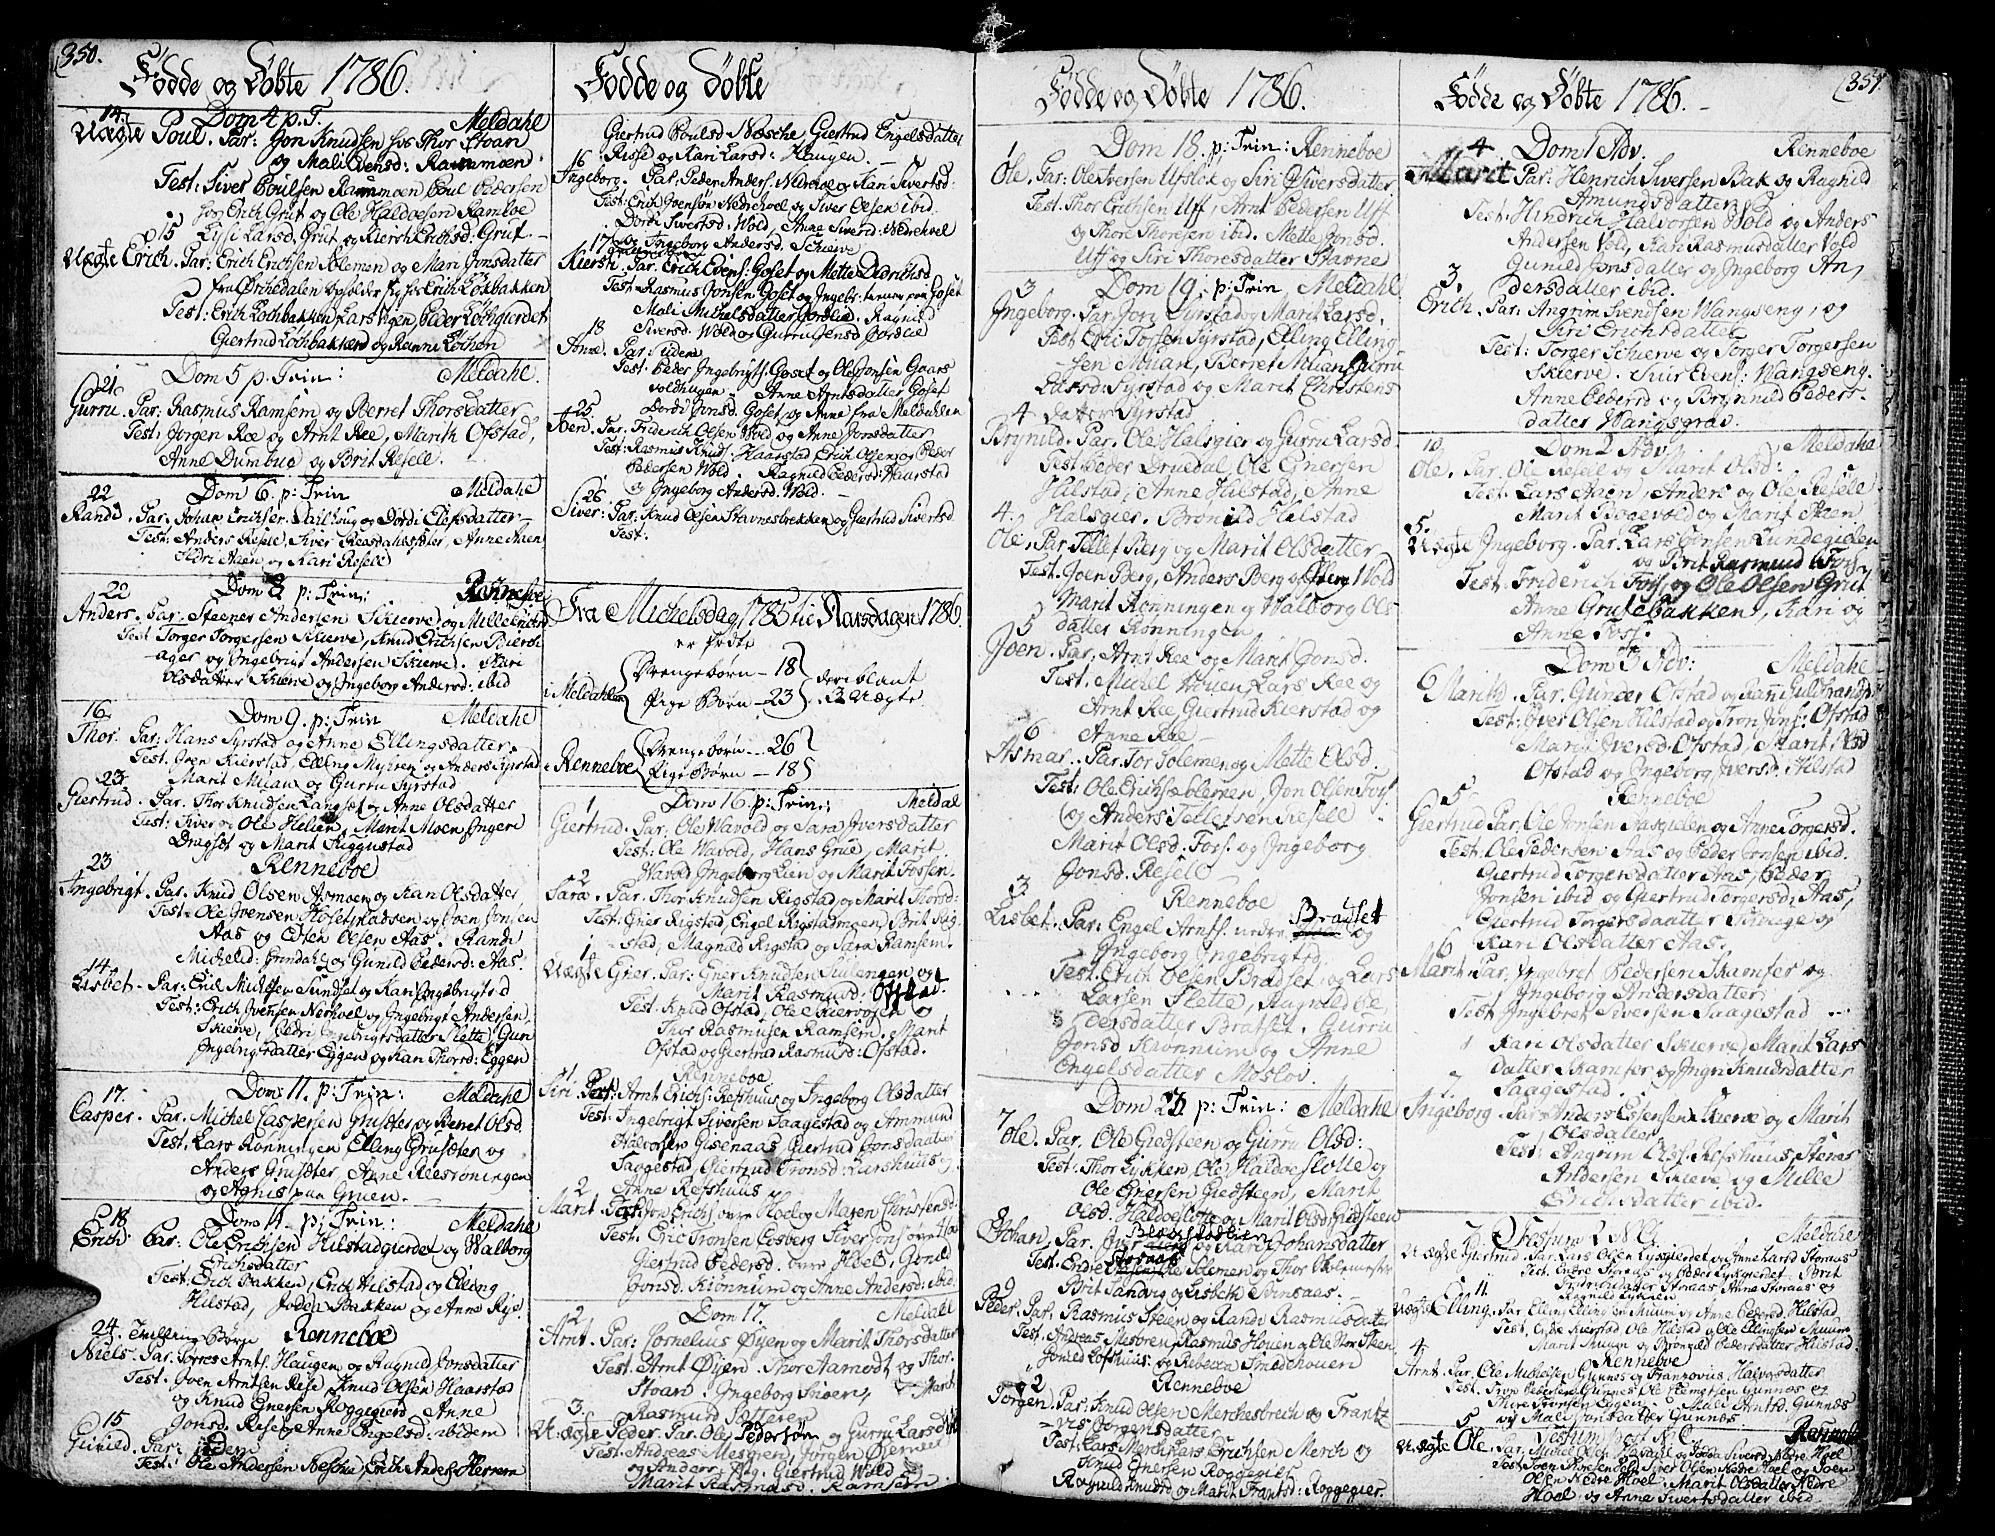 350.
Fødde og Døbte 1786.
14. Dom 4 p. T. Meldahl
Uægte Poul. Par: Jon Knudsen hos Thor Stoan
og Mali Edensd: Rammoen.
Test: Siver Poulsen Rammoen Poul Pedersen
hos Erich Grut og Ole Haldoesen Ramboe
15 Lisi Larsd. Grut og Kiersti Erichsd: Grut.
Uægte Erich. Par: Erich Erichsen Solemen og Mari Jonsdatter
fra Ørchedalen opholder sig hos Erich Løkbakken
Test: Erich Løchbakken Lars ingen, Peder Løchgierdet
Giertrud Løchbakken og Ranni Løchen
Dom 5 p. Trin: Meldahl.
21
Gurru. Par: Rasmus Ramsem og Berret Thorsdatter
Test: Jorgen Ree og Arnt Ree, Marith Ofstad,
Anne Dumbue og Brit Resele.
22 Dom 6. p: Trin Meldahl
Randi. Par: Johan Erichsen Dailhoug og Dordi Elefsdatter
Test: Anders Resele, Siver Reesdahlsseter, Anne Aaen
Sidri Aaen og Kari Resele
22 Dom 8 p: Trin: Rennebue
Anders. Par: Steener Andersen Skierve og Mille
Test Torger Torgersen Skierve, Knud Erichsen Bierch
ager og Ingebrigt Andersen Skierve. Kari
Olsdatter Skierve og Ingeborg Andersd: ibid
16 Dom 9. p: Trin Meldahl
Thor. Par: Hans Syrstad og Anne Ellingsdatter.
Test: Iver Kierstad, Elling Myhren og Anders Syrstad
23. Marit Muan og Gurru Syrstad
Giertrud. Par: Thor Knudsen Langset og Anne Olsdatter
Test: Siver og Ole Helien, Marit Moen Ingeri
Dragset og Marit Riggustad
23 Renneboe
Ingebrigt. Par. Knud Olsen Asmoen og Kari Olsdatter,
Test: Ole Jvensen og Joen Jonsen
Aas og Esten Olsen Aas. Randi
14. Michelsd: Grindahl og Gunild Pedersd: Aas.
Lisbet. Par: Eric Sundset og Kari Ingebrigtsd
Test: Erich Jvensen Nerhoel og Ingebrigt Andersen
Skierve, Sedri Ingebrigtsdatter Slette, Gun
Ingebrigtsdatter Eggen og Kari Thorsd: Eggen
17. Dom 11. p: Trin: Meldahl
Casper. Par. Michel Caspersen Grusdter og Berret Olsd.
Test. Lars Rønningen Elling Grusdter og
Anders Grusdter Anne Reesroningen
og Agnis paa Gruen.
18 Dom 14. p: Trin: Meldahl
Erich Par: Ole Erichsen Hilstadgierdet og Walborg
Erichsdatter
Test: Erich Bakken, Erich Hilstad og Elling
Hilstad, Joden Bakken og Anne Rye
24. Tvilling Børn Rennebue
Niels. Par. Arntf. Haugen og Ragnild Jonsdatter
Test. Joen Arntsen Rese Knud Olsen Haarstad
og Knud Enersen Roggegierd, Anne
15 Jonsd. Rese og Anne Ingelsd: ibidem
Gunild. Par. idem
Test: Ole Andersen Næschie, Erich Anders. Herrem
Fødde og Døbte
Giertrud Poulsd Næsche Giertrud Engelsdatter
16 Risse og Kari Larsd: Haugen.
Ingeborg. Par: Peder Anders: Nedrevoe og Kari Sivertsd:
Test: Erich Joensøn Nedrevoel og Siver Olsen ibid.
Dordi Sivertsd, Wold, Anne Siverd: Nedrehoel
17 og Ingeborg Andersd. Skierve
Kiersti. Par. Erich Evens: Goset og Mette Didrichsd
Test: Rasmus Jonsen Goset og Ingebr: paa Goset
Mali Michelsdatter Jordlie. Ragnild
18 Siversd. Wold og Gurru Jensd Jordlie
Anne. Par. Iidem
Test: Peder Ingebrigts: Goset og Ole Jonsen Goars
voldhugen. Anne Arntsdatter Goset
25. Dordi Jonsd. Goset, og Anne fra Meldalen
Joen. Par. Friderich Olsen Wold og Anne Jonsdatter
Test: Rasmus Knuds: Haarstad Erich Olsen og Peder
Pedersen Wold. Ragnild Pedersd: Haarstad
26 og Ingeborg Andersd. Wold.
Siver. Par: Knud Olsen Stavnesbrekken og Giertrud Sivertsd
Test:
Fra Michelsdag 1785 til Aarsdagen 1786.
er fødte
i Meldahlen Drengebørn - 18 deriblant
Pige Børn - 23 3 Uægte
i Renneboe Drengebørn - 26
Pige Børn - 18
1 Dom 16 p: Trin: Meldal
Giertrud. Par. Ole Wavold og Sara Jversdatter
Test: Ole Wavold, Hans Grue, Marit
Wavold Ingeborg Lien og Marit Fossen.
2
Sara. Par. Thor Knudsen Rigstad og Marit Thorsd:
Test: Gner Rigstad, Engel Rigstadengen, Brit Rig
stad, Magnild Rigstad og Sara Ramsem.
1
Uægte Ener. Par: Gner Knudsen Kulengen og
Marit Rasmusd: Ofstad.
Test Knud Ofstad, Ole Kierroosen
Thor Rasmusen Ramsem, Marit
Ofstad og Giertrud Rasmusd: Ofstad.
1 Renneboe
Siri Test: Arnt Erichs: Refshuus og Ingeborg Olsdatter
Test: Ingebrigt Siversen Saagestad og Ammund
Halvorsen Gisenaas, Giertrud Jonsdatter
Saagestad, Giertrud Tronsd: Lurshuus og
2 Anne Refshuus
Marit Jon Erichs: øvre Hoel og Maren Christensd:
Test. Eric Tronsen Eosberg Siver Jons: øvre Hoel
Giertrud Pedersd. øvre Hoel, Gonild
Jonsd. Kiønnum og Anne Andersd: ibid:
2 Dom 17. Meldahl
Arnt. Par: Cornelius Øyen og Marit Thorsdatter
Test: Arnt Øyen. Thor Aamodt og Thor
Stoan. Ingeborg Snoen, Marit
3. Rasmusd Sattaren
Uægte Peder. Par. Ole Pedersøn og Gurru Larsd
Test: Andreas Mesøren, Jørgen Øjernet
og Anders Aag. Giertrud Wold
Marit Rasmusd. Ramsem
Fødde og Døbte 1786.
1 Dom 18. p: Trin: Renneboe
Ole. Par: Ole Iversen Ufslok og Siri Siversdatter
Test. Thor Erichsen Uff, Arnt Pedersen Uff
og Thore Thoresen ibid. Mette Jonsd.
Uff og Siri Thoresdatter Stavne
3 Dom 19. p: Trin Meldahl.
Ingeborg. Par. Jon Syrstad og Marit Larsd.
Test Eric Torsen Syrstad, Elling Elling
sen Muan, Berret Muan Gurru
Larsd Syrstad og Marit Christens
4 datter Syrstad
Brynild. Par. Ole Halsgier og Gurru Larsd
Test: Peder Druedal, Ole Enersen
Hilstad, Anne Hilstad, Anne
4. Halsgier. Brønild Hilstad
Ole. Par. Tellef Berg og Marit Olsdatter
Test. Joen Berg, Anders Berg og Berg Wold
Marit Rønningen og Walborg Ols
5 datter Rønningen
Joen. Par. Arnt Ree og Marit Jonsd.
Test. Michel Houen, Lars Ree og
Arnt Ree Giertrud Kierstad og
6 Anne Ree
Asmar. Par. Tor Solemen og Mette Olsd.
Test: Ole Erichs Solemen, Jon Olsen Fors
og Anders Tellefsøn Resele
Marit Olsd. Fors. og Ingeborg
Jonsd. Resel
3 Renneboe
Lisbet. Par: Engel Arntf. nedre Brattset og
Ingeborg Ingebrigtsd.
Test. Erich Olsen Bradset og Lars
Larsen Slette, Ragnild Pe
dersdatter Bratset. Gurru
Jonsd Kiønnum og Anne
Engelsdatter Moslov.
Dom 23 p: Trin: Meldahl
7
Ole. Par. Ole Giedsteen og Gurru Olsd:
Test: Thor Lykken Ole Haldoeslotte og
Ole Enersen Giedsteen, Marit
Olsd. Haldoeslotte og Marit Olsd. Giedsteen
8
Johan. Par. og Kari Johansdatter
Test. Endre Ole Solemen og Thor Skolemester
9 Brit Sandvig og Lisbeth Svinsaas.
Peder. Par. Rasmus Steen og Randi Rasmusdatter
Test. Andreas Mesøren, Rasmus Houen og Ole Stor Steen
Gonild Lofshuus: og Rebecca Smedshouen
2 Renneboe
Jørgen. Par. Knud Olsen Merchesbrech og Frantz
vis Jorgensdatter
Test. Lars Merch Lars Erichsen Merch og
Knud Enersen Roggegier
Ragnild Knudsd og Marit Frantsd: Roggegier.
351.
Fødde og Døbte 1786.
4 Dom 1 Adv. Renneboe
Marit Par: Henrich Siversen Bak og Raghild
Amundsdatter
Test: Hindrich Halvorsen Wold og Anders
Andersen Vold, Kari Rasmusdatter Vold
Gunild Jonsdatter og Ingeborg An,
3. dersdatter ibid.
Erich. Par. Angrim Svendsen Wangseng, og
Siri Erichsdatter
Test: Torger Schierve og Torger Torgersen
Skierve. Siur Evens: Wangseng.
Anne Pedersd og Brynnild Peders
datter Wangsgrav.
10. Dom 2 Adv. Meldahl
Ole. Par. Ole Resele og Marit Olsd:
Test. Lars Aaen, Anders og Ole Resele
Marit Bogevold og Marit Aaen
5.
Uægte Ingeborg. Par. Lars Jonsen Lundegiolen
og Brit Rasmusd Fors
Test. Friderich Fors. og Ole Olsen Grut
Anne Grutebakken, Kari og
Anne Fors.
Dom 3 Adv: Meldahl
6 Marith. Par. Gunder Ofstad og Ranni Guldbrandsd
Test: Iver Olsen Hilstad og Tron Jens: Ofstad
Marit Jversd. Ofstad, Marit Olsd
Ofstad og Ingeborg Jversd: Hilstad
5 Renneboe
Giertrud Par. Ole Jonsen Aasgielen og Anne Torgersd.
Test. Ole Pedersen Aas og Peder Jonsen ibid.
Giertrud Torgersdatter Aas, Peder
Jonsen ibid og Giertrud Torgersd: Aas,
Giertrud Torgersdaatter Stuige og
6 Kari Olsdatter Aas.
Marit. Par. Ingebret Pedersen Skamfer og
Ingeborg Andersdatter
Test Ingebret Siversen Saagestad
Kari Olsdatter Skierve, Marit Lars
datter Skamfer og Ingri Knudsdatter
7. Saagestad.
Ingeborg. Par. Anders Estensen Skierve og Marit
Olsdatter
Test: Angrim Olsf. Refshuus, Stener
Andersen Skierve og Mille
Erichsdatter ibid.
7 Festum Meldahl
Uægte Giertrud. Par. Lars Olsen Lysgierdet og Anne Larsd Storaas
Test. Endre Storaas og Peder Lykgierdet Brit
Fredrichsdatter Storaas, Anne Storaas og
11. Ragnild Lykken
Uægte Elling. Par. Elling Elling sen Muan og Anne Pedersd Hilstad
Test. Endre Kierstad Ole Hilstad og Ole Ellingsen Muan
4 Marit Muan og Brønild Pedersdatter Hilstad
Rennebue
Arnt. Par. Ole Michelsen Gunnes og Frankovius Halvorsdatter
Test. Tron Pedersen Gunnes Ole Gunnes og
Thore Tronsen Eggen. Mali Arntsd. Gunnes
og Mali Jonsdatter Gunnes
5 Festum post N. C. Rennebue
Uægte Ole. Par. Michel Olsen Hoel og Jodda Siversd. Nedre Hoel
Test: Joen Siver Olsen Nedre Hoel og Joen
Olsen Nedre Hoel. Marit Olsdatter Nedre
Hoel og Anne Sivertsdatter ibid.